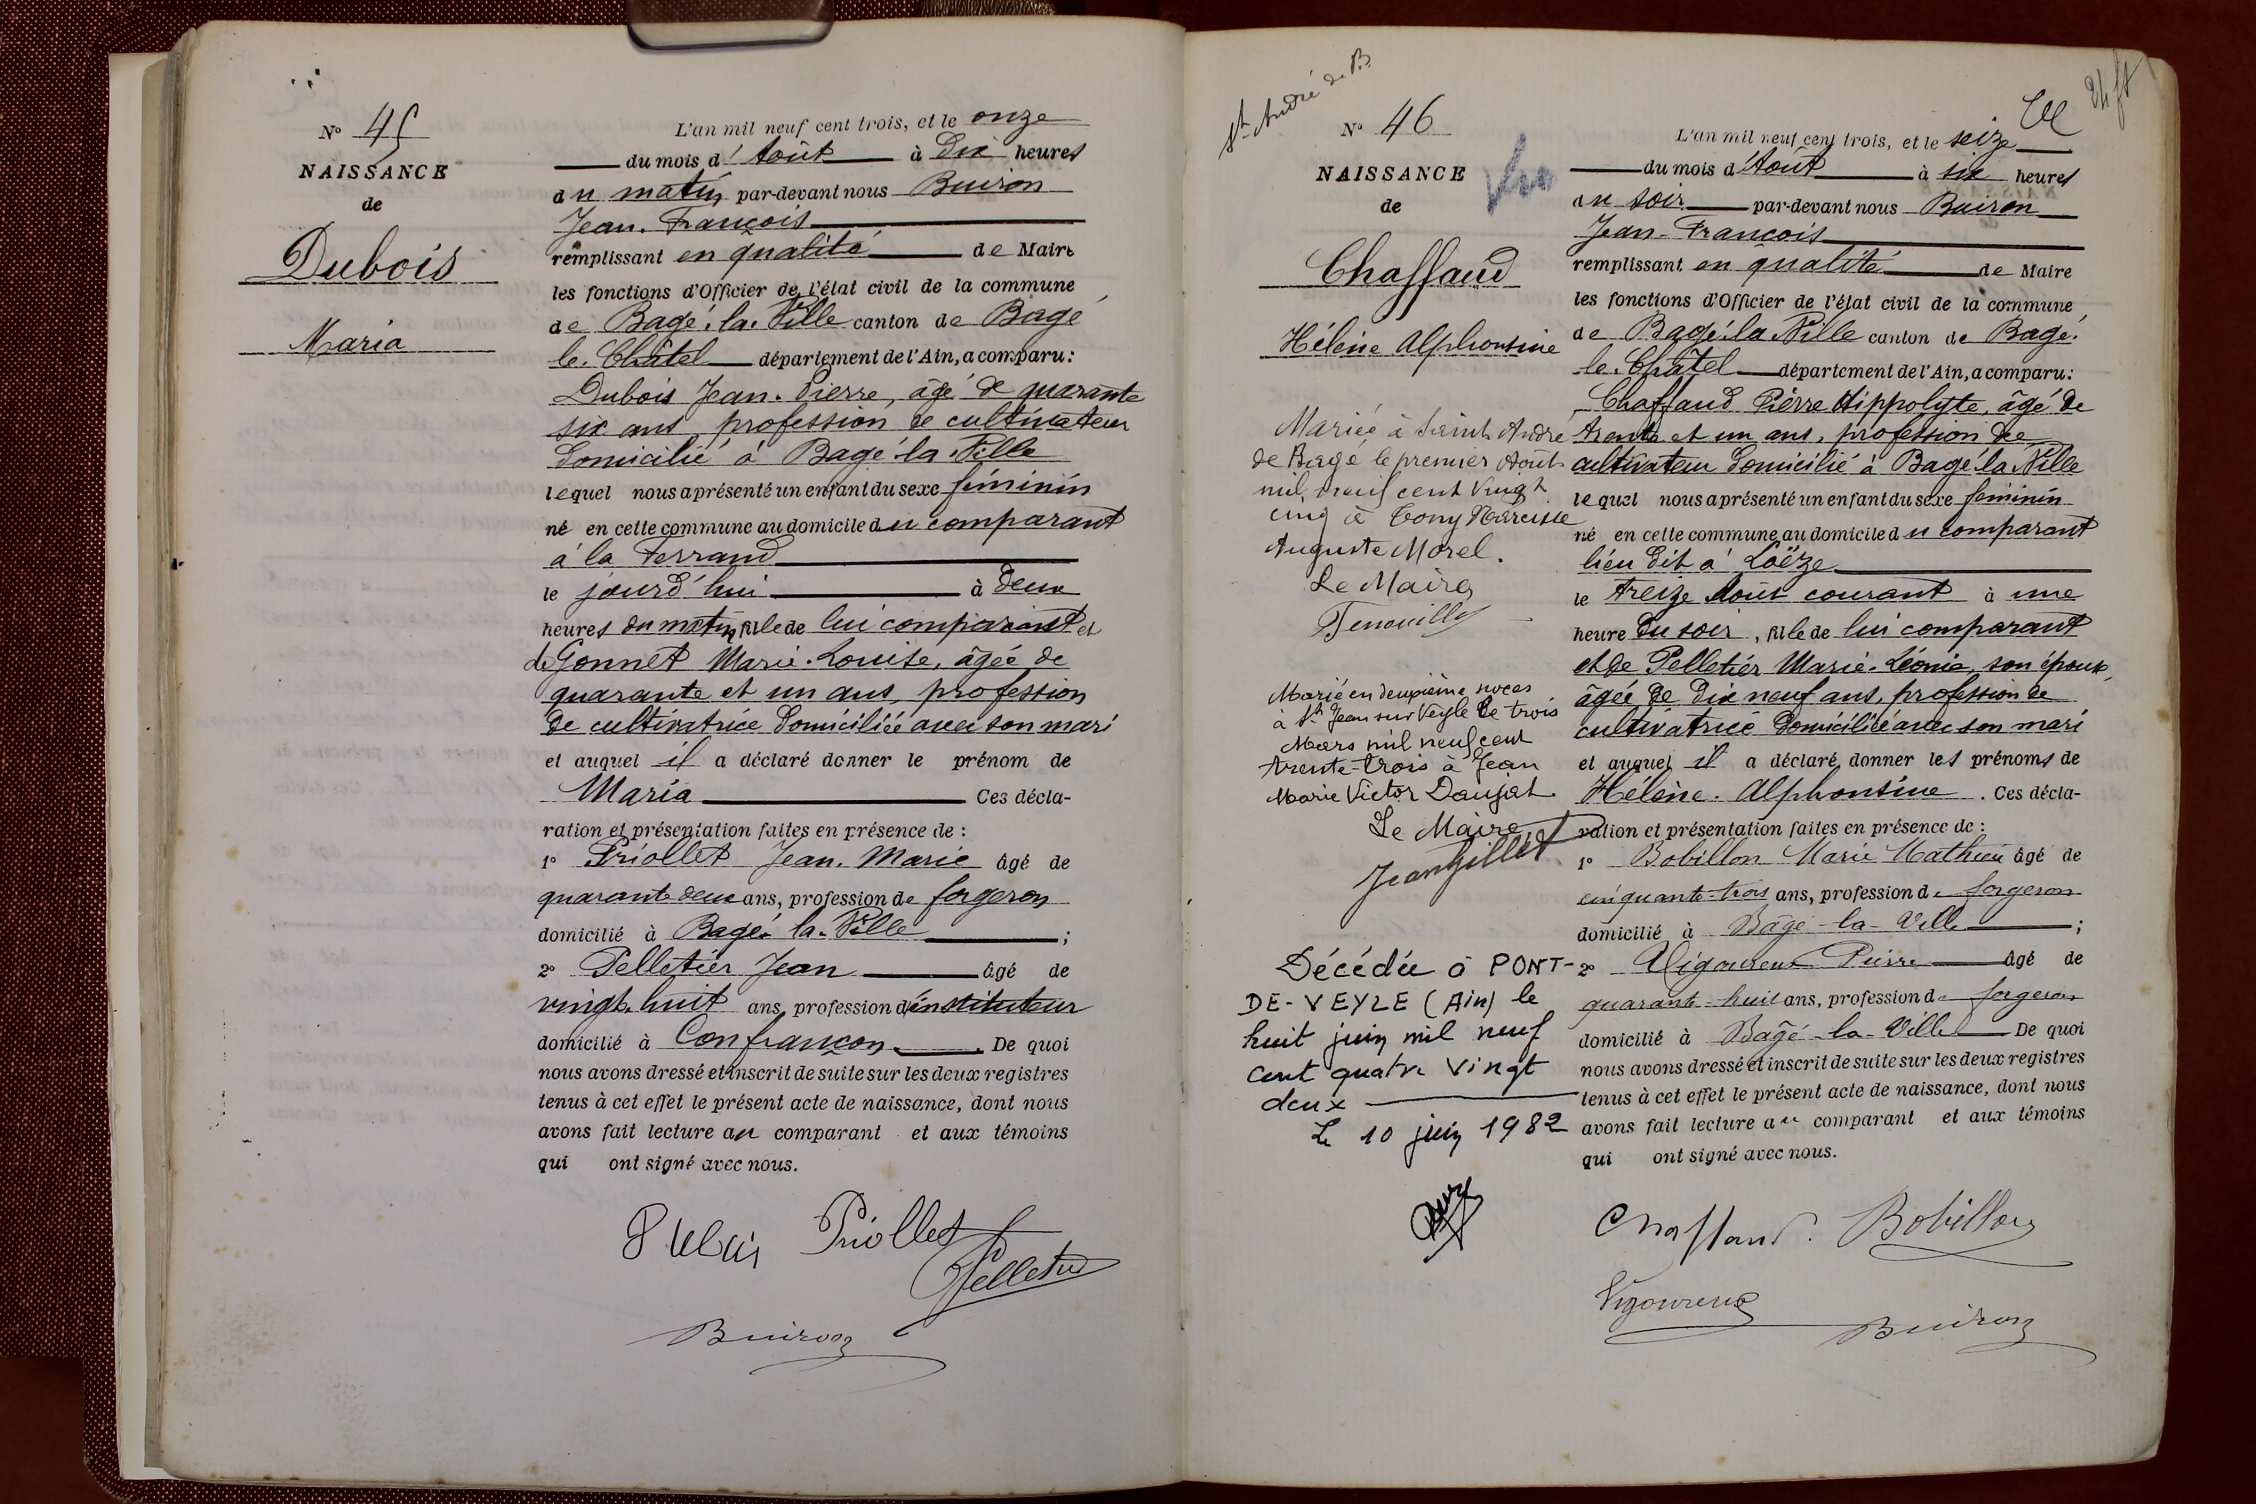 N° 45
NAISSANCE
de
Dubois
Maria
L'an mil neuf cent trois, et le onze
du mois d'Août à Dix heures
du matin par-devant nous Buiron
Jean-François
remplissant en qualité de Maire
les fonctions d'Officier de l'état civil de la commune
de Bagé-la-Ville canton de Bagé
le-Châtel département de l'Ain, a comparu:
Dubois Jean-Pierre, âgé de quarante
six ans profession de cultivateur
domicilié à Bagé-la-Ville
lequel nous a présenté un enfant du sexe féminin
né en cette commune au domicile du comparant
à la Ferrand
le jourd'hui à deux
heures du matin, fille de lui comparant et
de Gonnet Marie-Louise, âgée de
quarante et un ans, profession
de cultivatrice domiciliée avec son mari
et auquel il a déclaré donner le prénom de
Maria Ces décla-
ration et présentation faites en présence de :
1° Priollet Jean-Marie âgé de
quarante deux ans, profession de forgeron
domicilié à Bagé-la-Ville ;
2° Pelletier Jean âgé de
vingt-huit ans, profession d'instituteur
domicilié à Confrançon De quoi
nous avons dressé et inscrit de suite sur les deux registres
tenus à cet effet le présent acte de naissance, dont nous
avons fait lecture au comparant et aux témoins
qui ont signé avec nous.
Dubois Priollet
Pelletier
Buiron
St André de B.
24 ft
N° 46
NAISSANCE
de
Chaffaud
Hélène Alphonsine
Mariée à Saint André
de Bagé le premier Août
mil neuf cent vingt
cinq à Tony Narcisse
Auguste Morel.
Le Maire
Marié en deuxième noces
à St Jean sur Veyle le trois
Mars mil neuf cent
trente-trois à Jean
Marie Victor Daujat
Le Maire
Jean Gillet
Décédée à PONT-
DE-VEYLE (Ain) le
huit juin mil neuf
cent quatre vingt
deux
Le 10 juin 1982
L'an mil neuf cent trois, et le seize
du mois d'Août à six heures
du soir par-devant nous Buiron
Jean-François
remplissant en qualité de Maire
les fonctions d'Officier de l'état civil de la commune
de Bagé-la-Ville canton de Bagé-
le-Châtel département de l'Ain, a comparu:
Chaffaud Pierre Hippolyte, âgé de
trente et un ans, profession de
cultivateur domicilié à Bagé-la-Ville
lequel nous a présenté un enfant du sexe féminin
né en cette commune au domicile du comparant
lieu dit à Loëze
le treize Août courant à une
heure du soir, fille de lui comparant
et de Pelletier Marie-Léonie, son épouse,
âgée de dix neuf ans, profession de
cultivatrice domiciliée avec son mari
et auquel il a déclaré donner les prénoms de
Hélène-Alphonsine. Ces décla-
ration et présentation faites en présence de :
1° Bobillon Marie Mathieu âgé de
cinquante-trois ans, profession de forgeron
domicilié à Bagé-la-Ville ;
2° Vigoureux Pierre âgé de
quarante-huit ans, profession de forgeron
domicilié à Bagé-la-Ville De quoi
nous avons dressé et inscrit de suite sur les deux registres
tenus à cet effet le présent acte de naissance, dont nous
avons fait lecture au comparant et aux témoins
qui ont signé avec nous.
Chaffaud. Bobillon
Vigoureux
Buiron